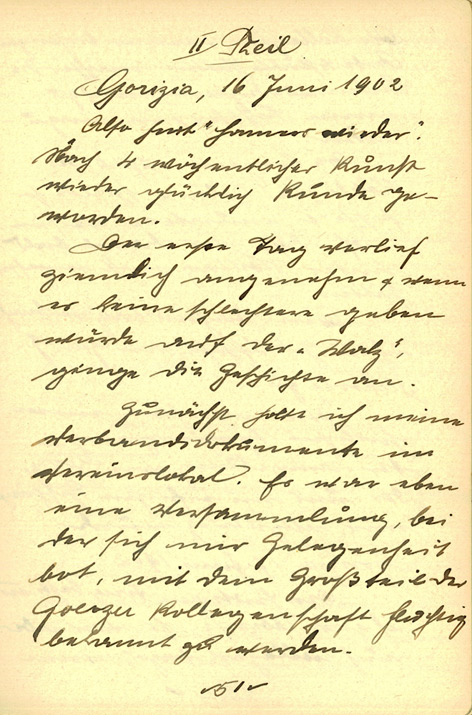 II Theil
Gorizia, 16 Juni 1902
Also heut "hammers wieder".
Nach 4 wöchentlicher Kunst
wieder glücklich Kunde ge-
worden.
Der erste Tag verlief
ziemlich angenehm & wenn
es keine schlechtere geben
würde auf der "Walz",
ginge die Geschichte an.
Zunächst holte ich meine
Verbandsdokumente im
Vereinslokal. Es war eben
eine Versammlung, bei
der sich mir Gelegenheit
bot, mit dem Großteil der
Goerzer Kollegenschaft flüchtig
bekannt zu werden.
51